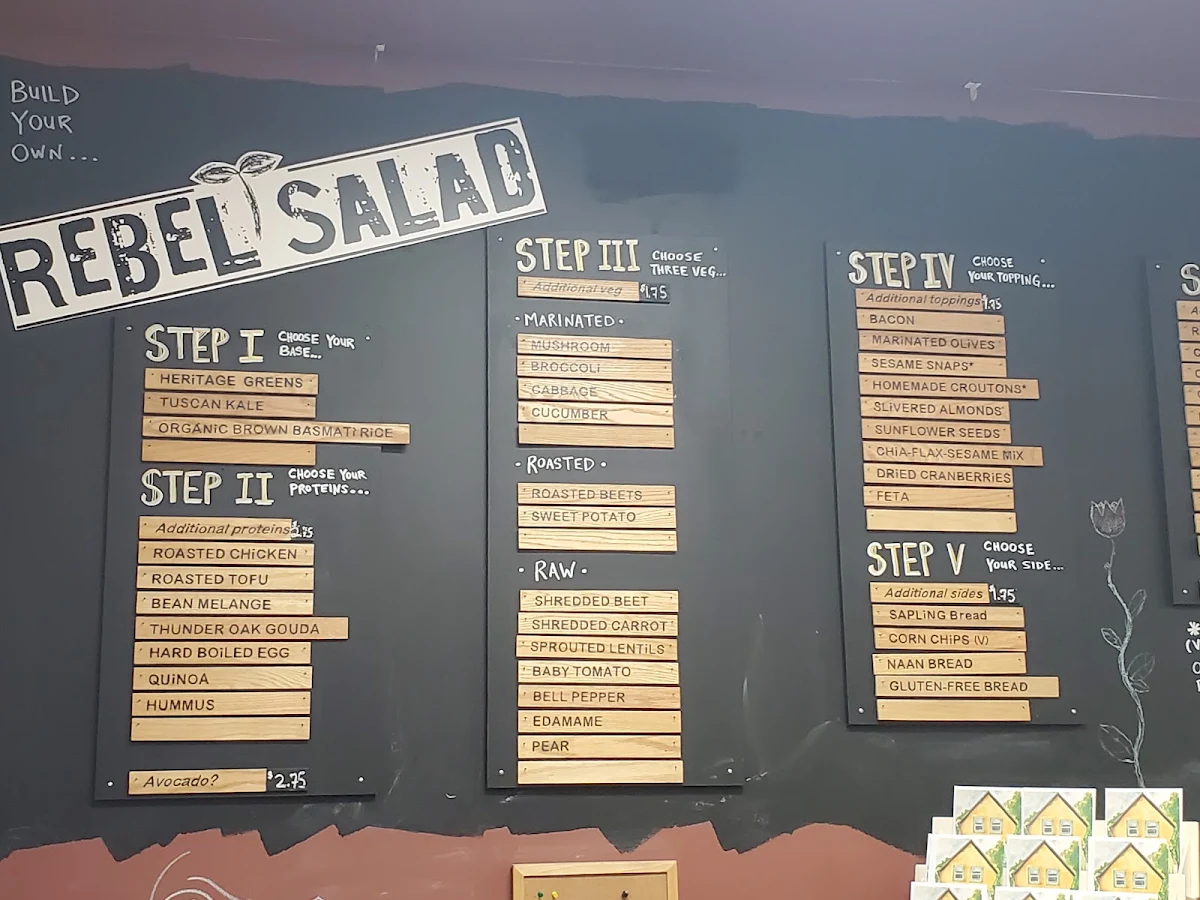 BUILD
YOUR
OWN...
REBEL SALAD
STEP I CHOOSE YOUR
BASE...
HERITAGE GREENS
TUSCAN KALE
ORGANIC BROWN BASMATI RICE
STEP II CHOOSE YOUR
PROTEINS...
Additional proteins $2.75
ROASTED CHICKEN
ROASTED TOFU
BEAN MELANGE
THUNDER OAK GOUDA
HARD BOILED EGG
QUINOA
HUMMUS
Avocado? $2.75
STEP III CHOOSE
THREE VEG...
Additional veg $1.75
·MARINATED·
MUSHROOM
BROCCOLI
CABBAGE
CUCUMBER
·ROASTED·
ROASTED BEETS
SWEET POTATO
·RAW·
SHREDDED BEET
SHREDDED CARROT
SPROUTED LENTILS
BABY TOMATO
BELL PEPPER
EDAMAME
PEAR
STEP IV CHOOSE
YOUR TOPPING...
Additional toppings $1.75
BACON
MARINATED OLIVES
SESAME SNAPS*
HOMEMADE CROUTONS*
SLIVERED ALMONDS
SUNFLOWER SEEDS
CHIA-FLAX-SESAME MIX
DRIED CRANBERRIES
FETA
STEP V CHOOSE
YOUR SIDE...
Additional sides $1.75
SAPLING Bread
CORN CHIPS (V)
NAAN BREAD
GLUTEN-FREE BREAD